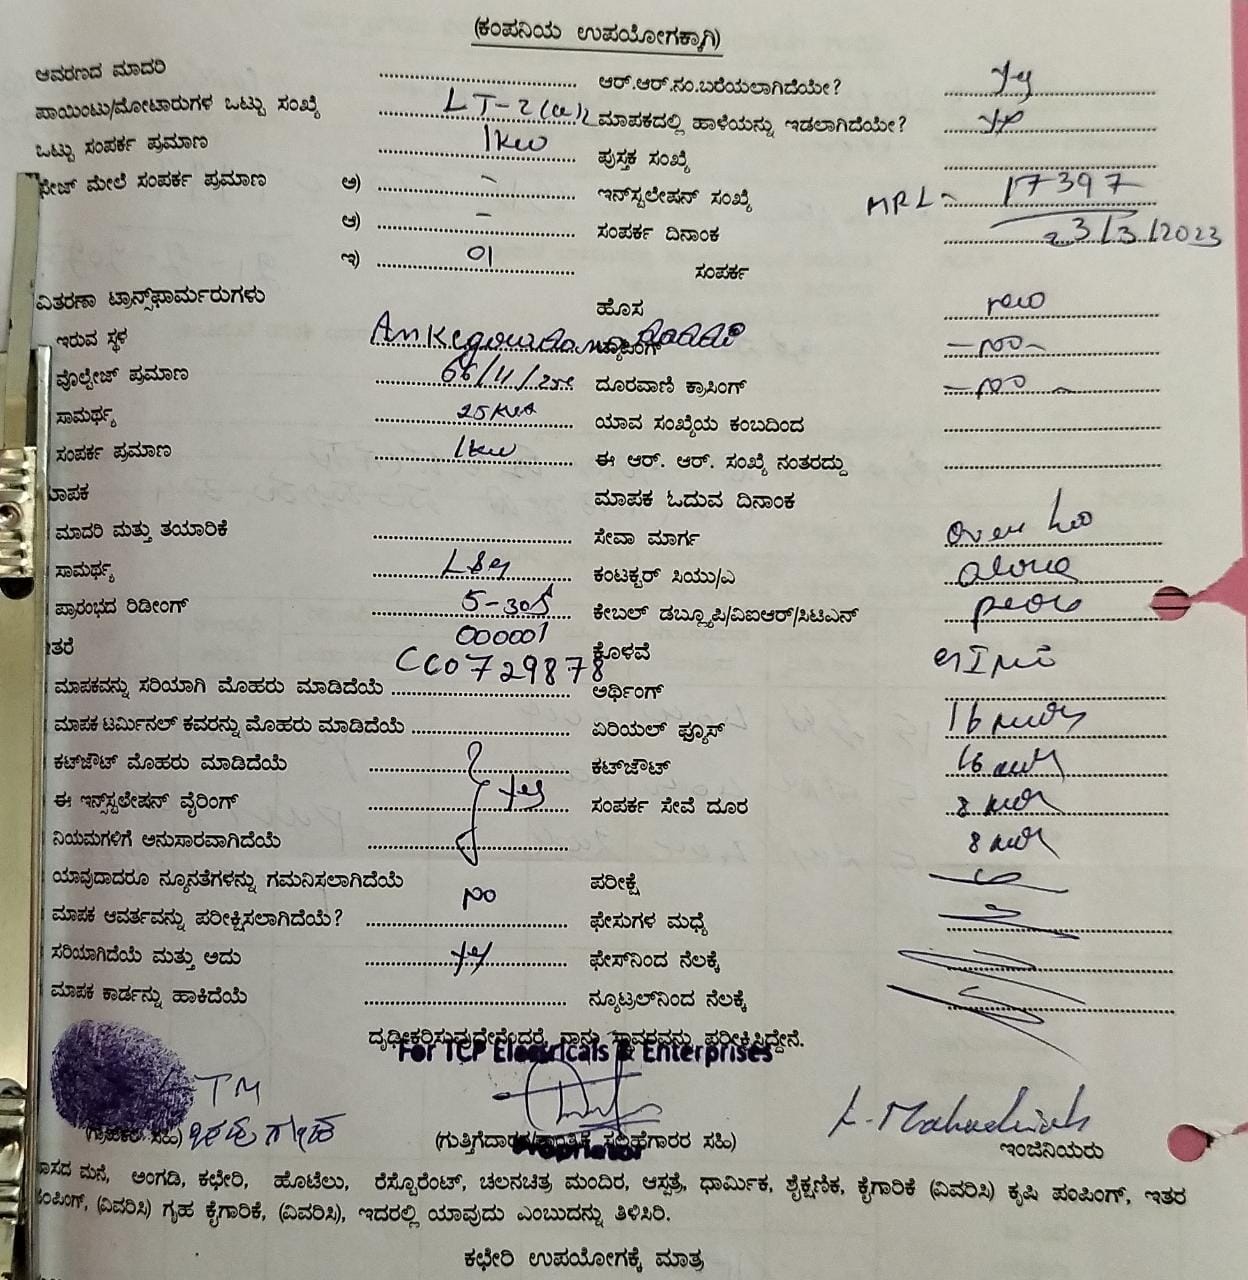 (ಕಂಪನಿಯ ಉಪಯೋಗಕ್ಕಾಗಿ)
ಆವರಣದ ಮಾದರಿ ........ ಆರ್.ಆರ್.ನಂ.ಬರೆಯಲಾಗಿದೆಯೇ?
ಪಾಯಿಂಟು/ಮೋಟಾರುಗಳ ಒಟ್ಟು ಸಂಖ್ಯೆ LT-2(a)2 ಮಾಪಕದಲ್ಲಿ ಹಾಳೆಯನ್ನು ಇಡಲಾಗಿದೆಯೇ?
ಒಟ್ಟು ಸಂಪರ್ಕ ಪ್ರಮಾಣ 1kw ಪುಸ್ತಕ ಸಂಖ್ಯೆ
ಫೇಜ್ ಮೇಲೆ ಸಂಪರ್ಕ ಪ್ರಮಾಣ ಅ) - ಇನ್‌ಸ್ಟಲೇಷನ್ ಸಂಖ್ಯೆ MRL- 17397
ಆ) - ಸಂಪರ್ಕ ದಿನಾಂಕ 23/3/2023
ಇ) 01 ಸಂಪರ್ಕ
ವಿತರಣಾ ಟ್ರಾನ್ಸ್‌ಫಾರ್ಮರುಗಳು ಹೊಸ new
ಇರುವ ಸ್ಥಳ -no-
ವೊಲ್ಟೇಜ್ ಪ್ರಮಾಣ 66/11/ ದೂರವಾಣಿ ಕ್ರಾಸಿಂಗ್ -no-
ಸಾಮರ್ಥ್ಯ 25KVA ಯಾವ ಸಂಖ್ಯೆಯ ಕಂಬದಿಂದ
ಸಂಪರ್ಕ ಪ್ರಮಾಣ 1kw ಈ ಆರ್. ಆರ್. ಸಂಖ್ಯೆ ನಂತರದ್ದು
ಮಾಪಕ ಮಾಪಕ ಓದುವ ದಿನಾಂಕ
ಮಾದರಿ ಮತ್ತು ತಯಾರಿಕೆ ಸೇವಾ ಮಾರ್ಗ
ಸಾಮರ್ಥ್ಯ ಕಂಟಕ್ಟರ್ ಸಿಯು/ಎ
ಪ್ರಾರಂಭದ ರಿಡೀಂಗ್ 5-30 ಕೇಬಲ್ ಡಬ್ಲ್ಯೂಪಿ/ವಿಐಆರ್/ಸಿಟಿಎನ್
000001
ಇತರೆ CC0729878 ಕೊಳವೆ
ಮಾಪಕವನ್ನು ಸರಿಯಾಗಿ ಮೊಹರು ಮಾಡಿದೆಯೆ ಅರ್ಥಿಂಗ್
ಮಾಪಕ ಟರ್ಮಿನಲ್ ಕವರನ್ನು ಮೊಹರು ಮಾಡಿದೆಯೆ ಏರಿಯಲ್ ಫ್ಯೂಸ್ 16
ಕಟ್‌ಔಟ್ ಮೊಹರು ಮಾಡಿದೆಯೆ ಕಟ್‌ಔಟ್ 16
ಈ ಇನ್ಸ್‌ಸ್ಟಲೇಷನ್ ವೈರಿಂಗ್ yes ಸಂಪರ್ಕ ಸೇವೆ ದೂರ 8
ನಿಯಮಗಳಿಗೆ ಅನುಸಾರವಾಗಿದೆಯೆ 8
ಯಾವುದಾದರೂ ನ್ಯೂನತೆಗಳನ್ನು ಗಮನಿಸಲಾಗಿದೆಯೆ no ಪರೀಕ್ಷೆ
ಮಾಪಕ ಆವರ್ತವನ್ನು ಪರೀಕ್ಷಿಸಲಾಗಿದೆಯೆ? ಫೇಸುಗಳ ಮಧ್ಯೆ
ಸರಿಯಾಗಿದೆಯೆ ಮತ್ತು ಅದು ಫೇಸ್‌ನಿಂದ ನೆಲಕ್ಕೆ
ಮಾಪಕ ಕಾರ್ಡನ್ನು ಹಾಕಿದೆಯೆ ನ್ಯೂಟ್ರಲ್‌ನಿಂದ ನೆಲಕ್ಕೆ
ದೃಢೀಕರಿಸುವುದೇನೆಂದರೆ, ನಾನು ಸ್ಥಾವರವನ್ನು ಪರೀಕ್ಷಿಸಿದ್ದೇನೆ.
For TCP Electricals & Enterprises
LTM
(ಗ್ರಾಹಕರ ಸಹಿ) (ಗುತ್ತಿಗೆದಾರರ/ತಾಂತ್ರಿಕ ಸಲಹೆಗಾರರ ಸಹಿ) ಇಂಜಿನಿಯರು
Proprietor
ವಾಸದ ಮನೆ, ಅಂಗಡಿ, ಕಛೇರಿ, ಹೊಟೆಲು, ರೆಸ್ಟೊರೆಂಟ್, ಚಲನಚಿತ್ರ ಮಂದಿರ, ಆಸ್ಪತ್ರೆ, ಧಾರ್ಮಿಕ, ಶೈಕ್ಷಣಿಕ, ಕೈಗಾರಿಕೆ (ವಿವರಿಸಿ) ಕೃಷಿ ಪಂಪಿಂಗ್, ಇತರ
ಪಂಪಿಂಗ್, (ವಿವರಿಸಿ) ಗೃಹ ಕೈಗಾರಿಕೆ, (ವಿವರಿಸಿ), ಇದರಲ್ಲಿ ಯಾವುದು ಎಂಬುದನ್ನು ತಿಳಿಸಿರಿ.
ಕಛೇರಿ ಉಪಯೋಗಕ್ಕೆ ಮಾತ್ರ